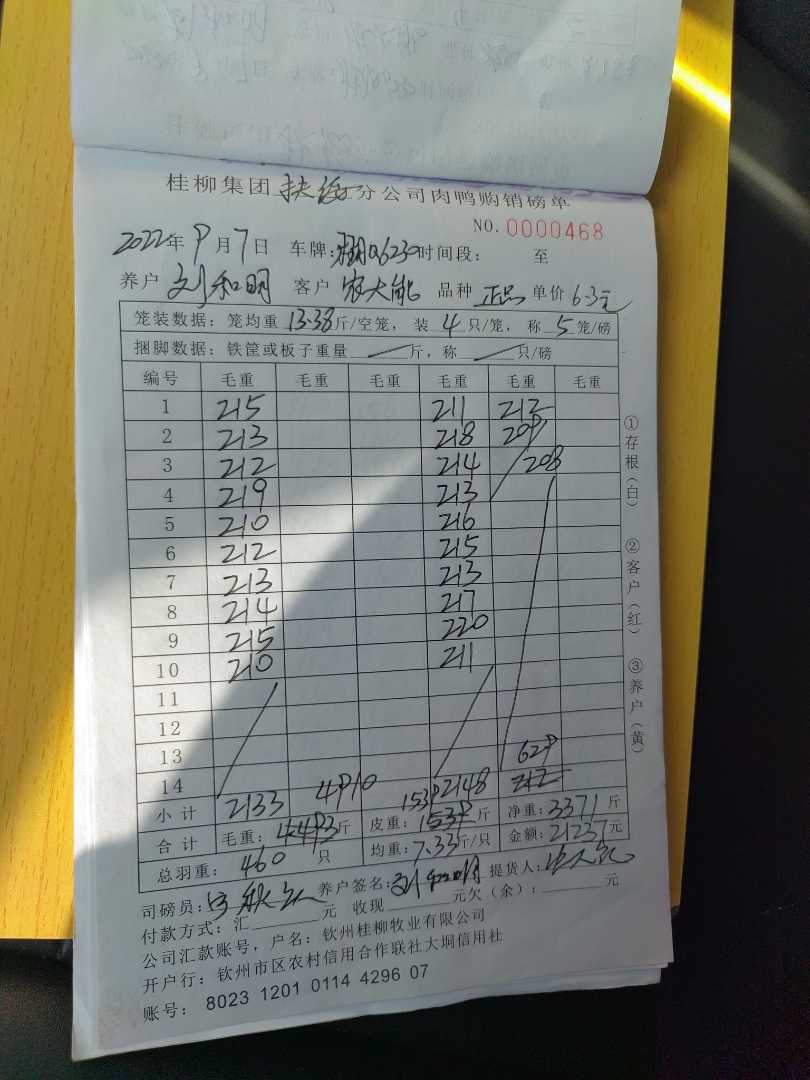 桂柳集团扶绥分公司肉鸭购销磅单
NO. 0000468
2022年9月7日 车牌: 06230 时间段: 至
养户 刘和明 客户 农大能 品种 正品 单价 6.3元
笼装数据: 笼均重 13.38斤/空笼, 装 4 只/笼, 称 5 笼/磅
捆脚数据: 铁筐或板子重量 — 斤, 称 — 只/磅
编号 毛重 毛重 毛重 毛重 毛重 毛重
1 215 211 212
2 213 218 209
3 212 214 208
4 219 213
5 210 216
6 212 215
7 213 213
8 214 217
9 215 220
10 210 211
11
12
13 629
14 212
小计 2133 4910 1539 2148
合计 毛重: 4493斤 皮重: 1539斤 净重: 3371斤
总羽重: 460 只 均重: 7.33斤/只 金额: 21237元
司磅员: 养户签名: 刘和明 提货人:
付款方式: 汇 元 收现 元欠(余): 元
公司汇款账号, 户名: 钦州桂柳牧业有限公司
开户行: 钦州市区农村信用合作联社大垌信用社
账号: 8023 1201 0114 4296 07
①存根(白) ②客户(红) ③养户(黄)